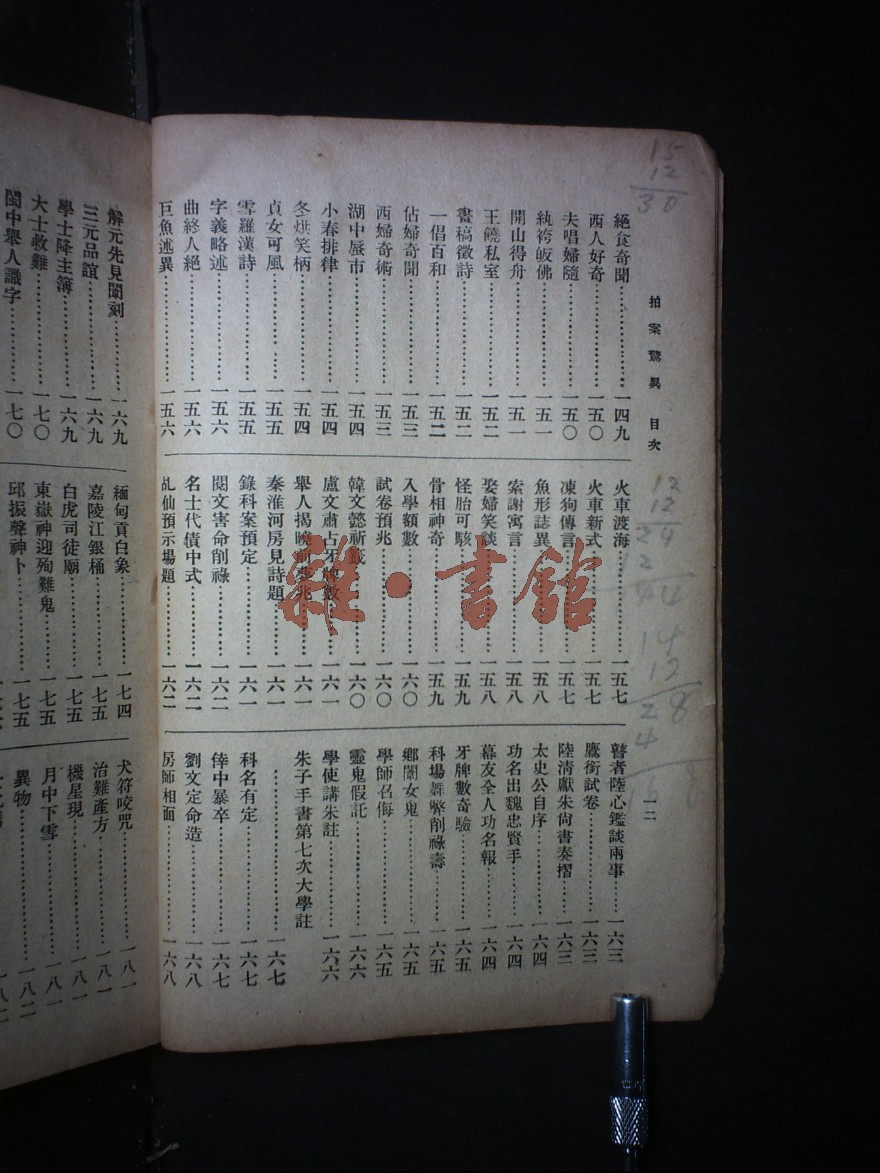 拍案驚異 目次
一二
絕食奇聞…………一四九
西人好奇…………一五〇
夫唱婦隨…………一五〇
紈袴皈佛…………一五一
開山得舟…………一五一
王饒私室…………一五二
書稿徵詩…………一五二
一倡百和…………一五二
佔婦奇聞…………一五三
西婦奇術…………一五三
湖中蜃市…………一五四
小春排律…………一五四
冬烘笑柄…………一五四
貞女可風…………一五五
雪羅漢詩…………一五五
字義略述…………一五六
曲終人絕…………一五六
巨魚述異…………一五六
火車渡海…………一五七
火車新式…………一五七
凍狗傳言…………一五七
魚形誌異…………一五八
索謝寓言…………一五八
娶婦笑談…………一五八
怪胎可駭…………一五九
骨相神奇…………一五九
入學額數…………一六〇
試卷預兆…………一六〇
韓文懿祈籤…………一六〇
盧文肅占牙牌數…………一六一
舉人揭曉前夢兆…………一六一
秦淮河房見詩題…………一六一
錄科案預定…………一六一
閱文害命削祿…………一六二
名士代債中式…………一六二
乩仙預示場題…………一六二
瞽者陸心鑑談兩事…………一六三
鷹銜試卷…………一六三
陸清獻朱尙書奏摺…………一六三
太史公自序…………一六四
功名出魏忠賢手…………一六四
幕友全人功名報…………一六四
牙牌數奇驗…………一六五
科場舞弊削祿壽…………一六五
鄉闈女鬼…………一六五
學師召侮…………一六五
靈鬼假託…………一六六
學使講朱註…………一六六
朱子手書第七次大學註
…………一六七
科名有定…………一六七
倖中暴卒…………一六七
劉文定命造…………一六八
房師相面…………一六八
解元先見闈刻…………一六九
三元品誼…………一六九
學士降主簿…………一六九
大士救難…………一七〇
閩中舉人識字…………一七〇
緬甸貢白象…………一七四
嘉陵江銀桶…………一七五
白虎司徒廟…………一七五
東嶽神迎殉難鬼…………一七五
邱振聲神卜
犬符咬咒…………一八一
治難產方…………一八一
機星現…………一八一
月中下雪…………一八一
異物…………一八二
15
12
30
12
12
24
12
44
14
12
28
4
雜·書館